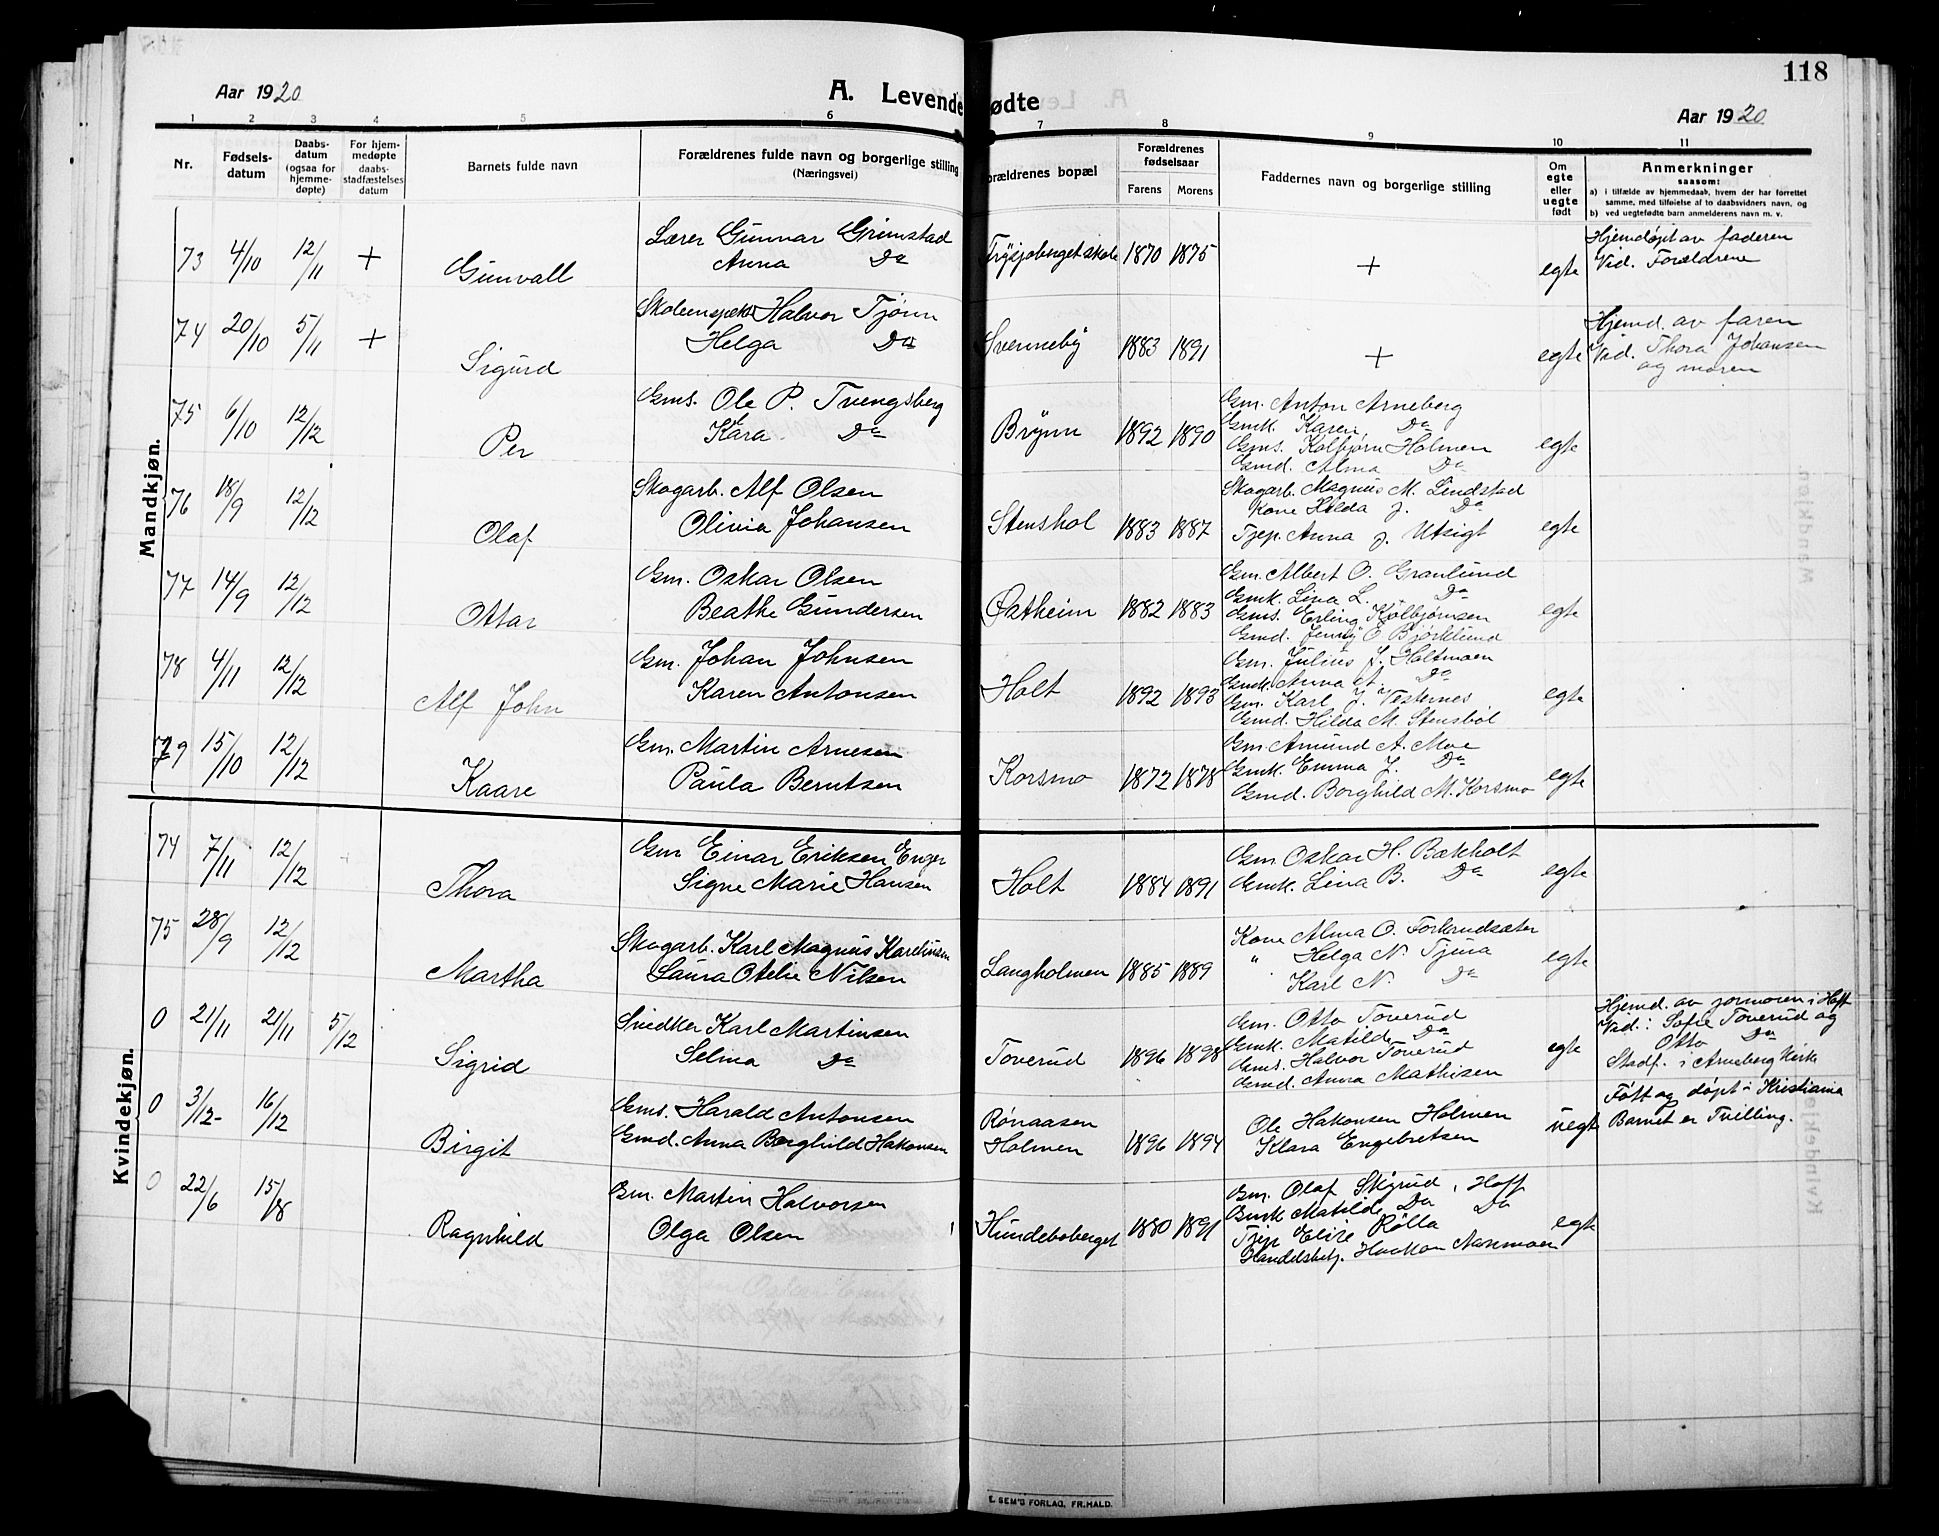 118
Aar 1920
A. Levendefødte
Aar 1920
1 2 3 4 5 6 7 8 9 10 11
Nr.
Fødsels-
datum
Daabs-
datum
(ogsaa for
hjemme-
døpte)
For hjem-
medøpte
daabs-
stadfæstelses
datum
Barnets fulde navn
Forældrenes fulde navn og borgerlige stilling
(Næringsvei)
orældrenes bopæl
Forældrenes
fødselsaar
Farens Morens
Faddernes navn og borgerlige stilling
Om
egte
eller
uegte
født
Anmerkninger
saasom:
a) i tilfælde av hjemmedaab, hvem der har forrettet
samme, med tilføielse af to daabsvidners navn, og
b) ved uegtefødte barn anmelderens navn m. v.
Mandkjøn.
73 4/10 12/11 + Gunvall
Lærer Gunnar Grimstad
Anna Do
Trysjøberget skole 1870 1875 + egte
Hjemdøpt av faderen
Vid. Forældrene
74 20/10 5/11 + Sigurd
Halvor Tjønn
Helga Do
Svenneby 1883 1891 + egte
Hjemd. av faren
Vid. Thora Johansen
og moren
75 6/10 12/12 Per
Gms. Ole P. Tvengsberg
Kara Do
Brynn 1892 1890
Gm. Anton Arneberg
Gmk. Karen Do
Gms. Kolbjørn Holmen
Gmd. Alma Do
egte
76 18/9 12/12 Olaf
Skogarb. Alf Olsen
Olivia Johansen
Stenshol 1883 1887
Skogarb. Magnus M. Lindstad
Kone Hilda J. Do
Tjep. Anna J. Utsigt
egte
77 14/9 12/12 Ottar
Gm. Oskar Olsen
Beathe Gundersen
Østheim 1882 1883
Gm. Albert O. Granlund
Gmk. Lina L. Do
Gms. Erling Kolbjørnsen
Gmd. Jenny O. Bjørklund
egte
78 4/11 12/12 Alf John
Gm. Johan Johnsen
Karen Antonsen
Holt 1892 1893
Gm. Julius J. Holtmoen
Gmk. Anna A. Do
Gm. Karl J. Vesternes
Gmd. Hilda M. Stensbøl
egte
79 15/10 12/12 Kaare
Gm. Martin Arnesen
Paula Berntsen
Korsmo 1872 1878
Gm. Amund A. Moe
Gmk. Emma J. Do
Gmd. Borghild M. Korsmo
egte
Kvindekjøn.
74 7/11 12/12 Thora
Gm Einar Eriksen Enger
Signe Marie Hansen
Holt 1884 1891
Gm. Oskar H. Bækholt
Gmk. Lina B. Do
egte
75 28/9 12/12 Martha
Skogarb. Karl Magnus Karelinsen
Laura Otelie Nilsen
Langholmen 1885 1889
Kone Alma O.
" Helga N. Tjura
Karl N. Do
egte
0 21/11 21/11 5/12 Sigrid
Snedker Karl Martinsen
Selma Do
Toverud 1896 1898
Gm. Otto Toverud
Gmk. Matilde Do
Gms. Halvor Toverud
Gmd. Anna Mathisen
egte
Hjemd. av jormoren i Hoff
Vid.: Sofie Toverud og
Otto Do
Stadf. i Arneberg Kirk
0 3/12 16/12 Birgit
Gms. Harald Antonsen
Gmd. Anna Borghild Hakonsen
Rønaasen
Holmen
1896 1894
Ole Hakonsen Holmen
Klara Engebretsen
uegt
Føtt og døpt i Kristiania
Barnet er Tvilling.
0 22/6 15/8 Ragnhild
Gm. Martin Halvorsen
Olga Olsen
Hundeboberget 1880 1891
Gm. Olaf Skyrud, Hoff
Gmk Matilde Do Do
Tjep Elise Rølla
Handelsbetj. Haakon Naremoen
egte
E. SEM'S FORLAG, FR.HALD.